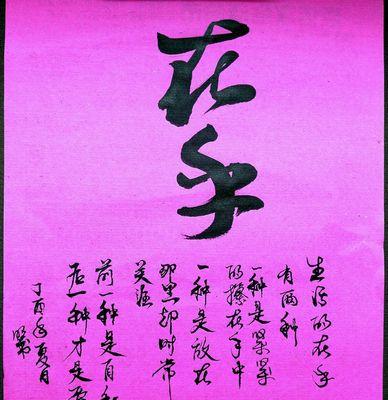 在乎
生活的在乎
有两种
一种是紧紧
的攥在手中
一种是放在
那里却时常
前一种是自
后一种才是
丁酉年夏月